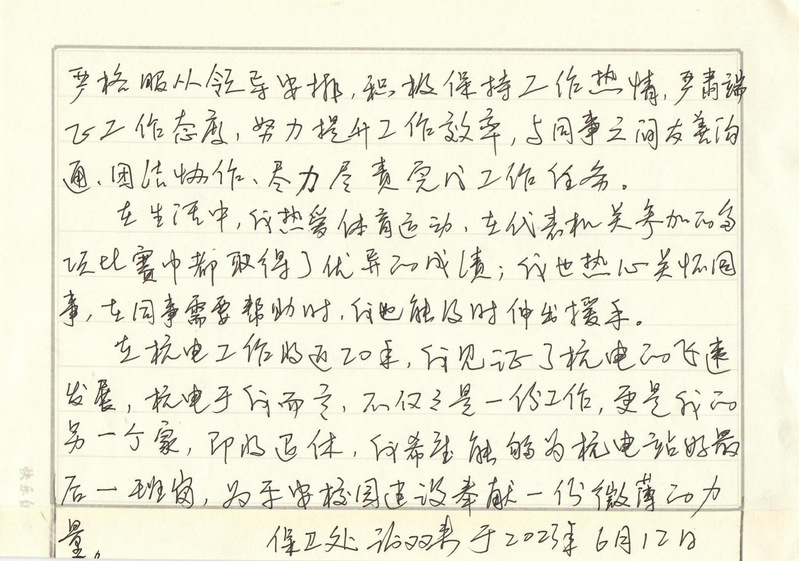 严格服从领导安排,积极保持工作热情,严肃端
正工作态度,努力提升工作效率,与同事之间友善沟
通、团结协作、尽力尽责完成工作任务。
在生活中,我热爱体育运动,在代表机关参加的多
项比赛中都取得了优异的成绩;我也热心关怀同
事,在同事需要帮助时,我也能及时伸出援手。
在杭电工作将近20年,我见证了杭电的飞速
发展,杭电于我而言,不仅仅是一份工作,更是我的
另一个家,即将退休,我希望能够为杭电站好最
后一班岗,为平安校园建设奉献一份微薄的力
量。
保卫处 双寿于2023年6月12日